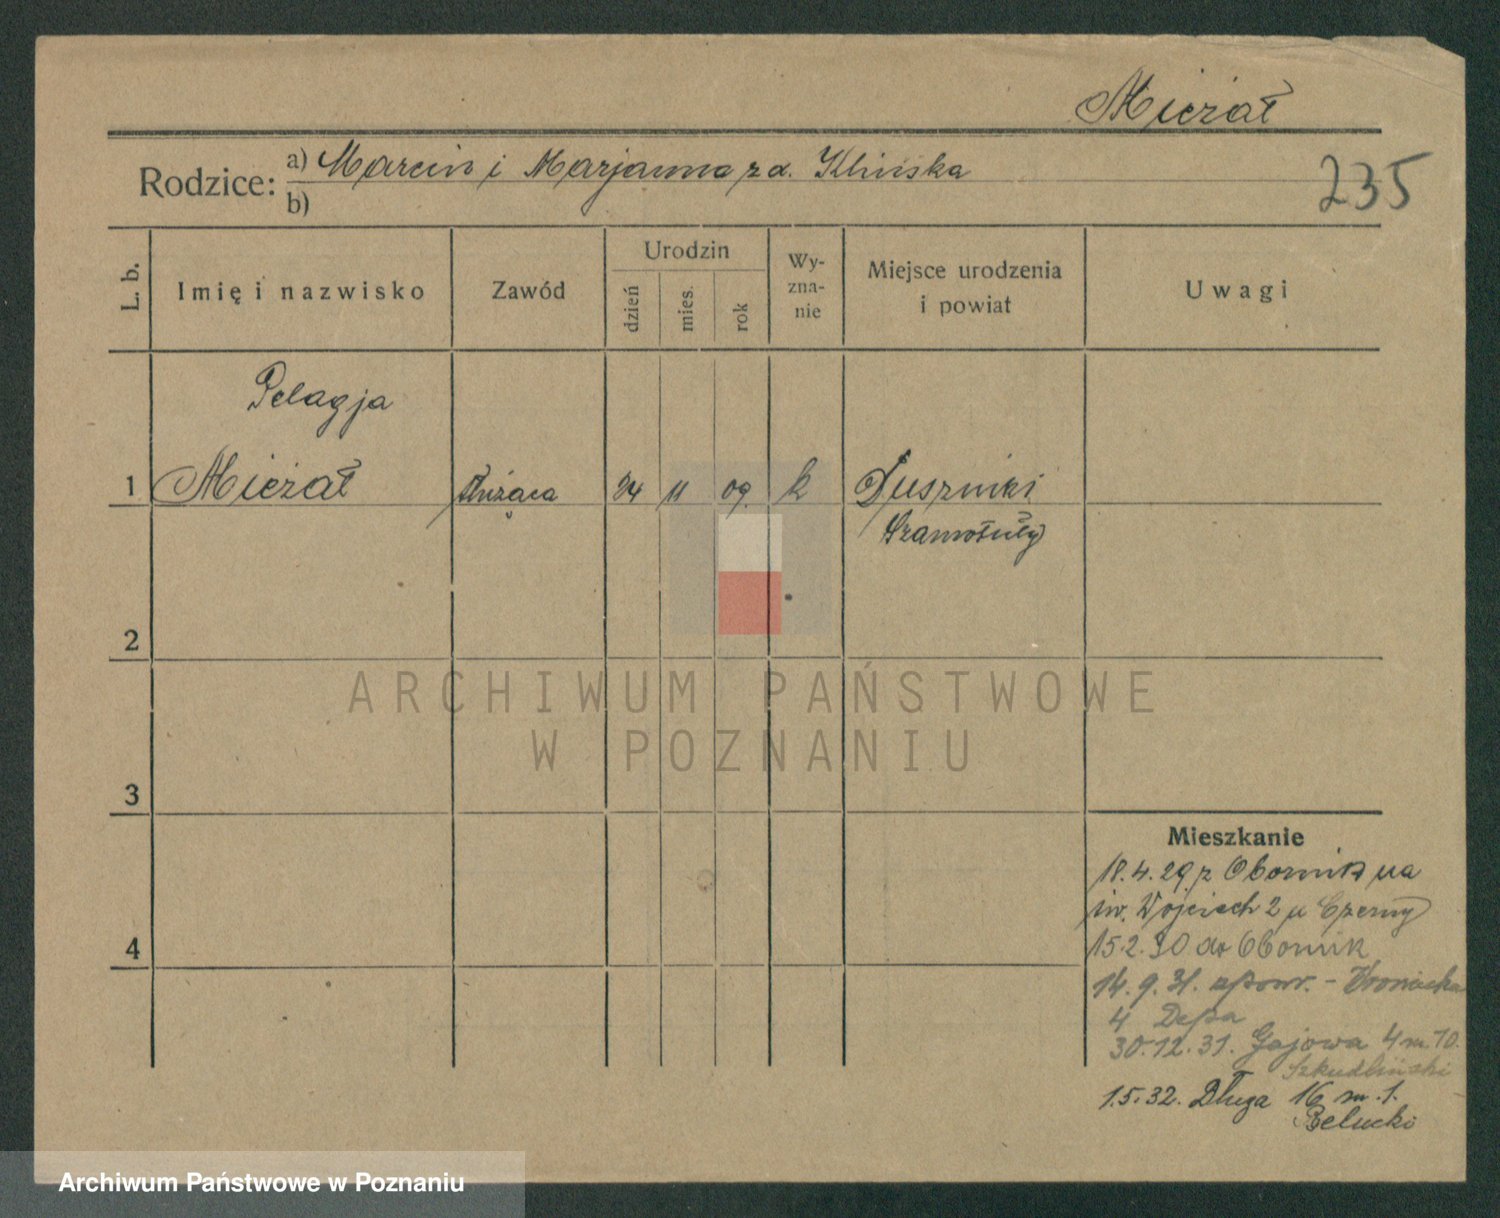 Mieżał
Rodzice: a) Marcin i Marjanna zd. Klińska
b)
235
L. b.
Imię i nazwisko
Zawód
Urodzin
dzień
mies.
rok
Wy-
zna-
nie
Miejsce urodzenia
i powiat
Uwagi
Pelagja
1 Mieżał służąca 24 11 09 k Duszniki
Szamotuły
2
3
4
ARCHIWUM PAŃSTWOWE
W POZNANIU
Mieszkanie
18.4.29 z Obornik na
św. Wojciech 2 u Czerny
15.2.30 do Obornik
14.9.31. zpowr. -
4
30.12.31. Gajowa 4 m. 10.
Szkudliński
1.5.32. Długa 16 m. 1.
Archiwum Państwowe w Poznaniu